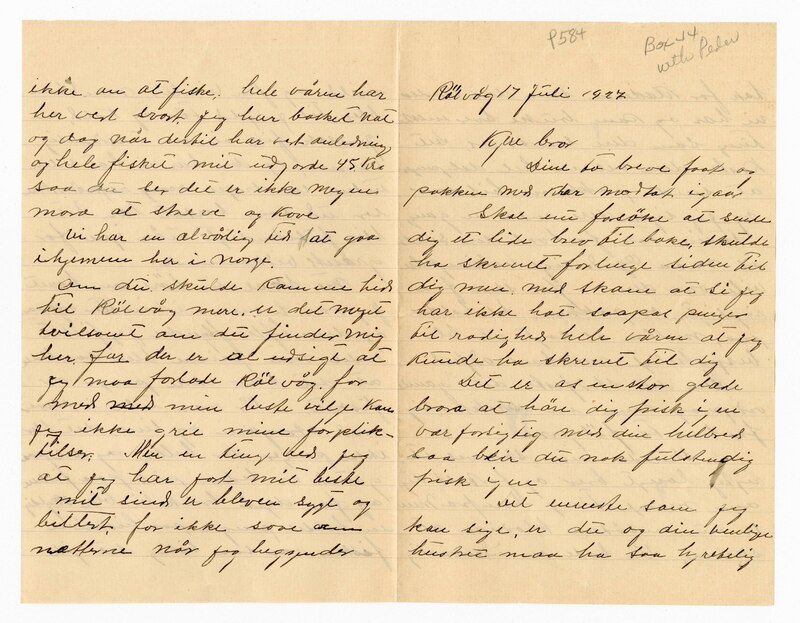 P584
Box 44
with Peder
Rölvåg 17 Juli 1927
Kjre bror
Dine to breve faat og
pakken med klær modtat igaar
Skal nu forsöke at sende
dig et lide brev til bake, skulde
ha skrevet forlenge siden til
dig men med skam at si jeg
har ikke hat saapas penger
til radighed hele våren at jeg
kunde ha skrevet til dig
Det er os en stor glæde
brora at höre dig frisk igen
vær forsigtig med din helbred
saa blir du nok fulstendig
frisk igen
Det eneste som jeg
kan sige, er du og din venlige
hustru maa ha saa hjertelig
ikke an at fiske. hele våren har
her vert svart. jeg har basket nat
og dag når dertil har vert anledning
og hele fisket mit udgjorde 45 Kr
saa du ser det er ikke megen
mora at streve og kove
Vi har en alvårlig tid at gaa
ihjemene her i norge.
om du skulde komme hid
til Rölvåg mere. er det meget
tvilsomt om du finder mig
her, for der er al udsigt at
jeg maa forlade Rölvåg. for
med min beste vilje kan
jeg ikke grie mine forplik-
telser. Men en ting ved jeg
at jeg har fort mit beste
mit sind er bleven sygt og
bittert, for ikke sove om
natterne når jeg begynder